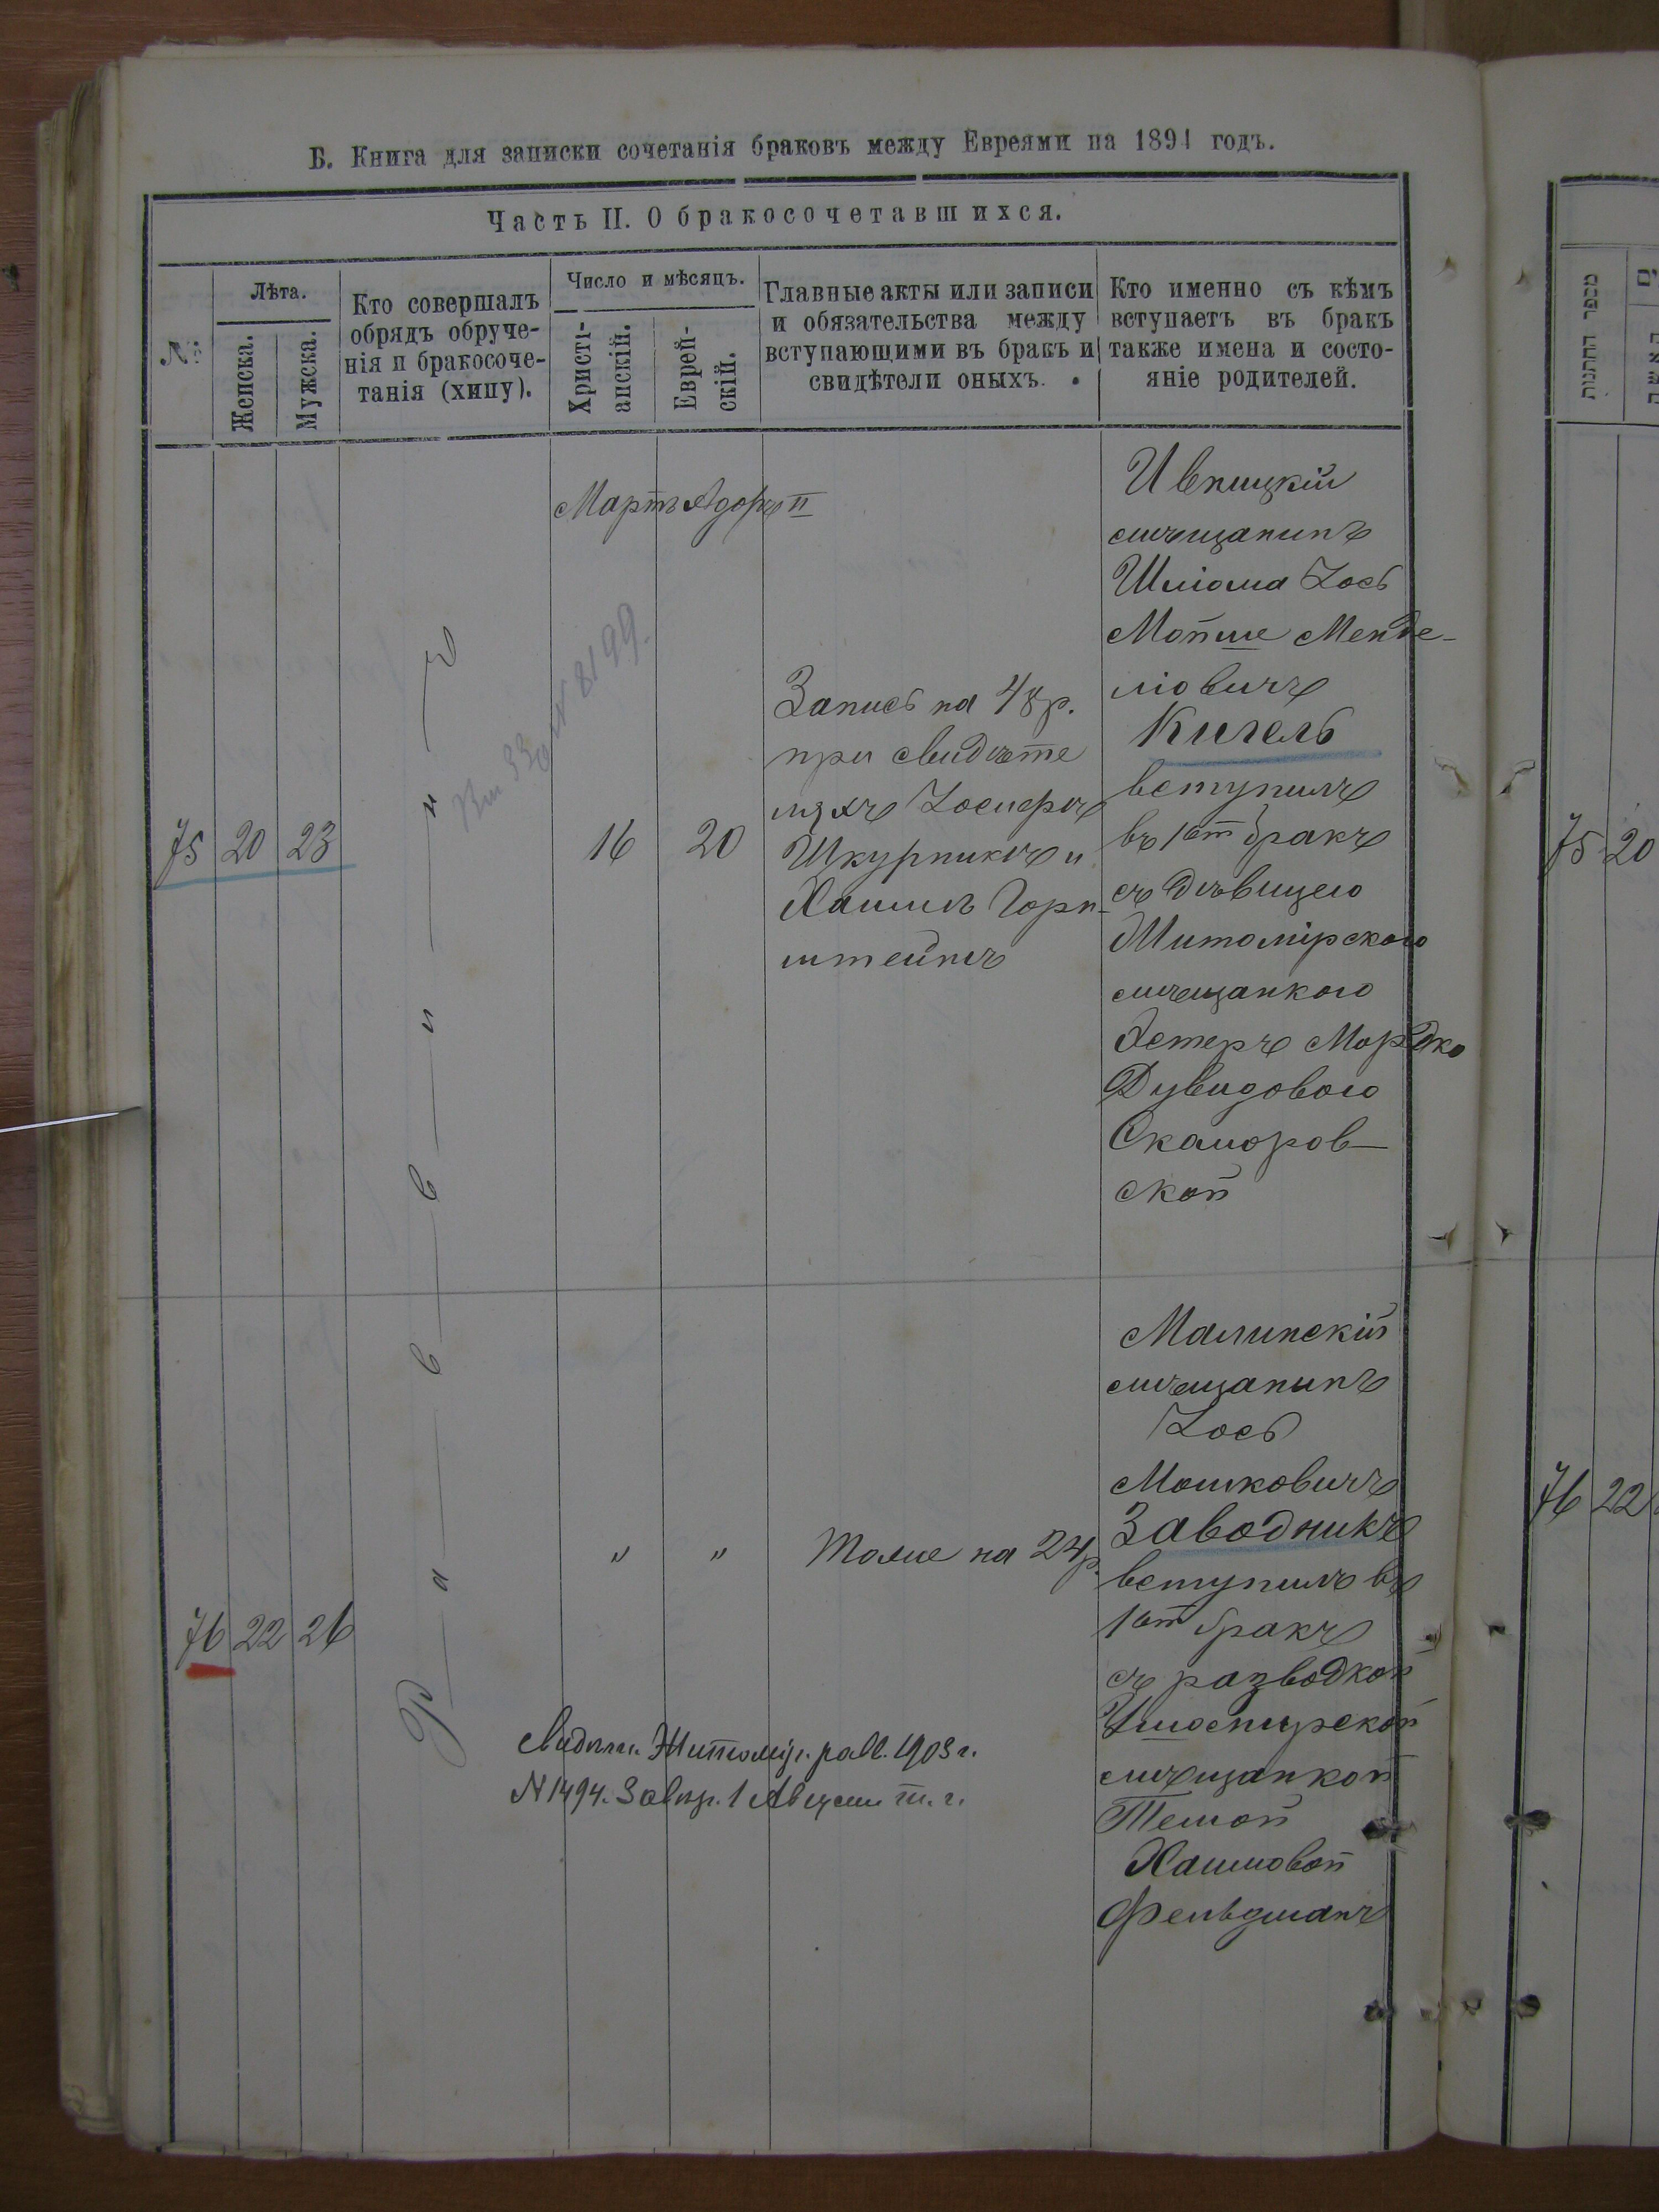 Б. Книга для записки сочетанія браковъ между Евреями на 1894 годъ.
Часть II. О бракосочетавшихся.
№
Лѣта.
Женска.
Мужска.
Кто совершалъ
обрядъ обруче-
нія и бракосоче-
танія (хипу).
Число и мѣсяцъ.
Христі-
анскій.
Еврей-
скій.
Главные акты или записи
и обязательства между
вступающими въ бракъ и
свидѣтели оныхъ.
Кто именно съ кѣмъ
вступаетъ въ бракъ
также имена и состо-
яніе родителей.
מספר החתונות
Мартъ Адоръ II
75 20 23
Раввинъ
16 20
Запись на 48 р.
при свидѣте
ляхъ Іосифѣ
Шкурникѣ и
Хаимѣ Горн-
штейнѣ
Ивницкій
мѣщанинъ
Шліома Іось
Мотше Менде-
ліовичъ
Кигель
вступилъ
въ 1ый бракъ
съ дѣвицею
Житомірскою
мѣщанкою
Эстеръ Мордко
Дувидовою
Скаморов-
ской
75 20
76 22 26
" "
Тоже на 24 р.
Малинскій
мѣщанинъ
Іось
Мошковичъ
Заводникъ
вступилъ въ
1ый бракъ
съ разводкой
мѣщанкой
Темой
Хаимовой
Фельдманъ
Житомір. равв. 1903 г.
N 1494.
76 22